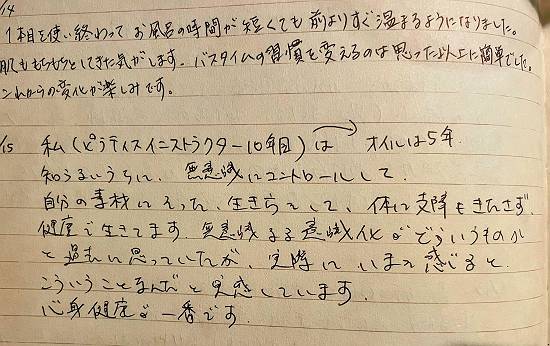 14
1本目を使い終わって お風呂の時間が短くても前よりすぐ温まるようになりました。
肌ももちもちしてきた気がします。バスタイムの習慣を変えるのは思った以上に簡単でした。
これからの変化が楽しみです。
15 私(ピラティスインストラクター10年目)は オイルは5年
知らずうちに、無意識にコントロールして、
自分の素材に 生き方 して、体に支障もきたさず
健康で生きてます 無意識なる意識化がどういうものか
と過去に思っていたが、実際に いまで感じると
こういうことなんだと実感しています
心身健康が一番です